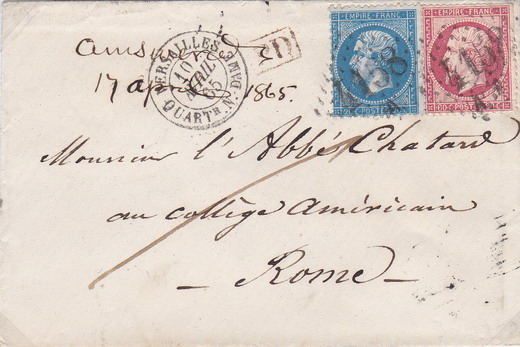 EMPIRE FRANC
EMPIRE FRANC
PD
VERSAILLES QUARTR N. DAME
10
AVRIL
65
17 april 1865.
4158
A
4158
A
POSTES
POSTES
Monsieur l'Abbé Chatard
au collège Américain
– Rome –